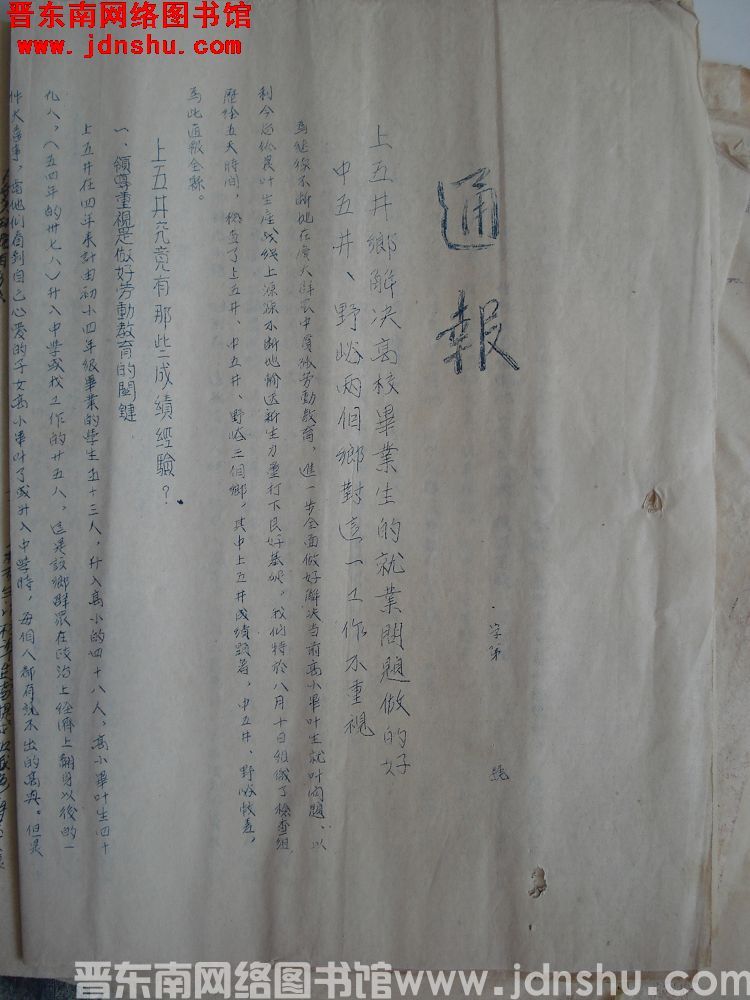 晋东南网络图书馆
www.jdnshu.com
通報
字第 號
上五井鄉解决高校畢業生的就業問題做的好
中五井、野峪两個鄉對這一工作不重視
為继续不断地在廣大群众中貫徹劳動教育，進一步全面做好解决当前高小畢叶生就叶问題，以
利今后依農叶生産战线上源源不断地輸送新生力量打下良好基础。我们特於八月十日组織了檢查组
歷经五天時间，检查了上五井、中五井、野峪三個鄉，其中上五井成績顕著，中五井、野峪較差，
為此通報全縣。
上五井究竟有那些成績經驗？
一、領導重視是做好劳動教育的関鍵
上五井在四年来計由初小四年級畢業的學生五十三人，升入高小的四十八人，高小畢叶生四十
九人，（五四年的卅七人）升入中學或找工作的廿五人，這是該鄉群眾在政治上經濟上翻身以後的一
件大喜事，當他们看到自己心愛的子女高小畢叶了或升入中學時，每個人都有說不出的高興。但是
晋东南网络图书馆www.jdnshu.com